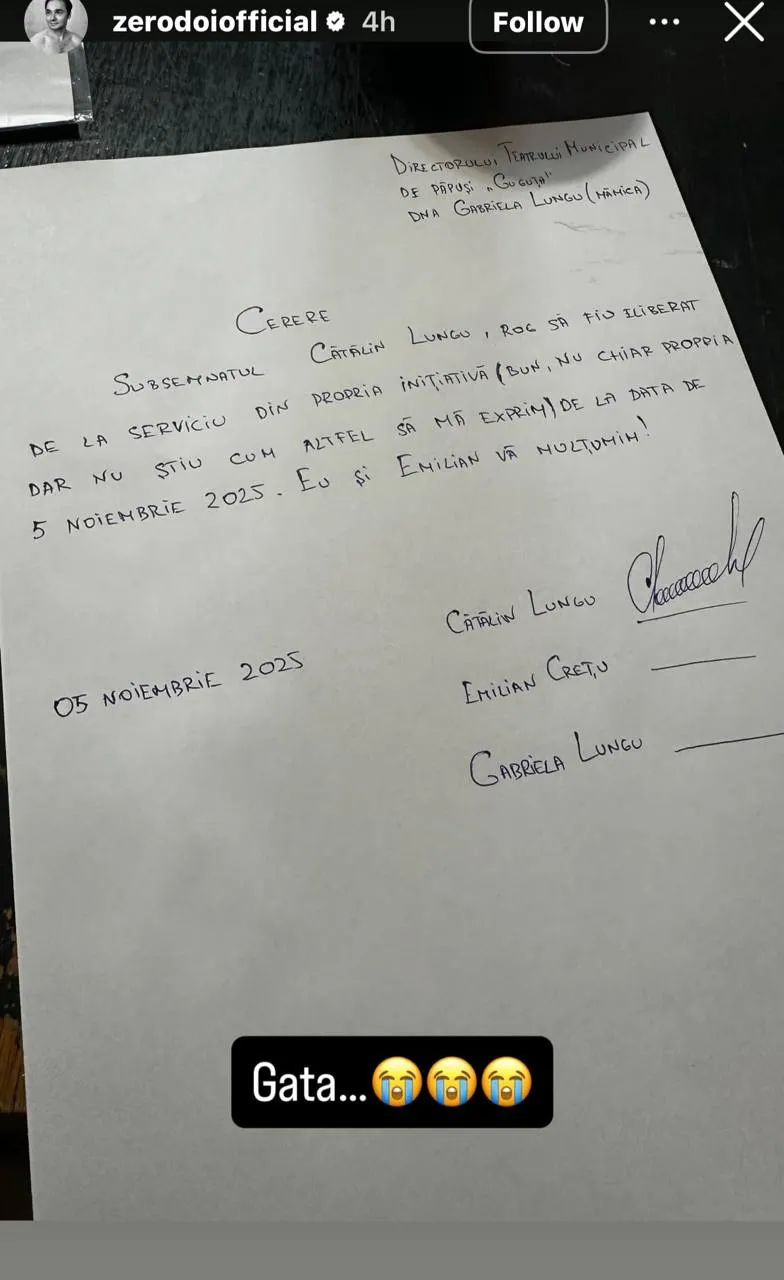 zerodoiofficial 4h Follow
Directorului Teatrului Municipal
de păpuși „Guguță"
dna Gabriela Lungu (mămica)
Cerere
Subsemnatul Cătălin Lungu, rog să fiu iliberat
de la serviciu din propria inițiativă (bun, nu chiar propria
dar nu știu cum altfel să mă exprim) de la data de
5 noiembrie 2025. Eu și Emilian vă mulțumim!
Cătălin Lungu
Emilian Crețu
05 noiembrie 2025
Gabriela Lungu
Gata...😭😭😭